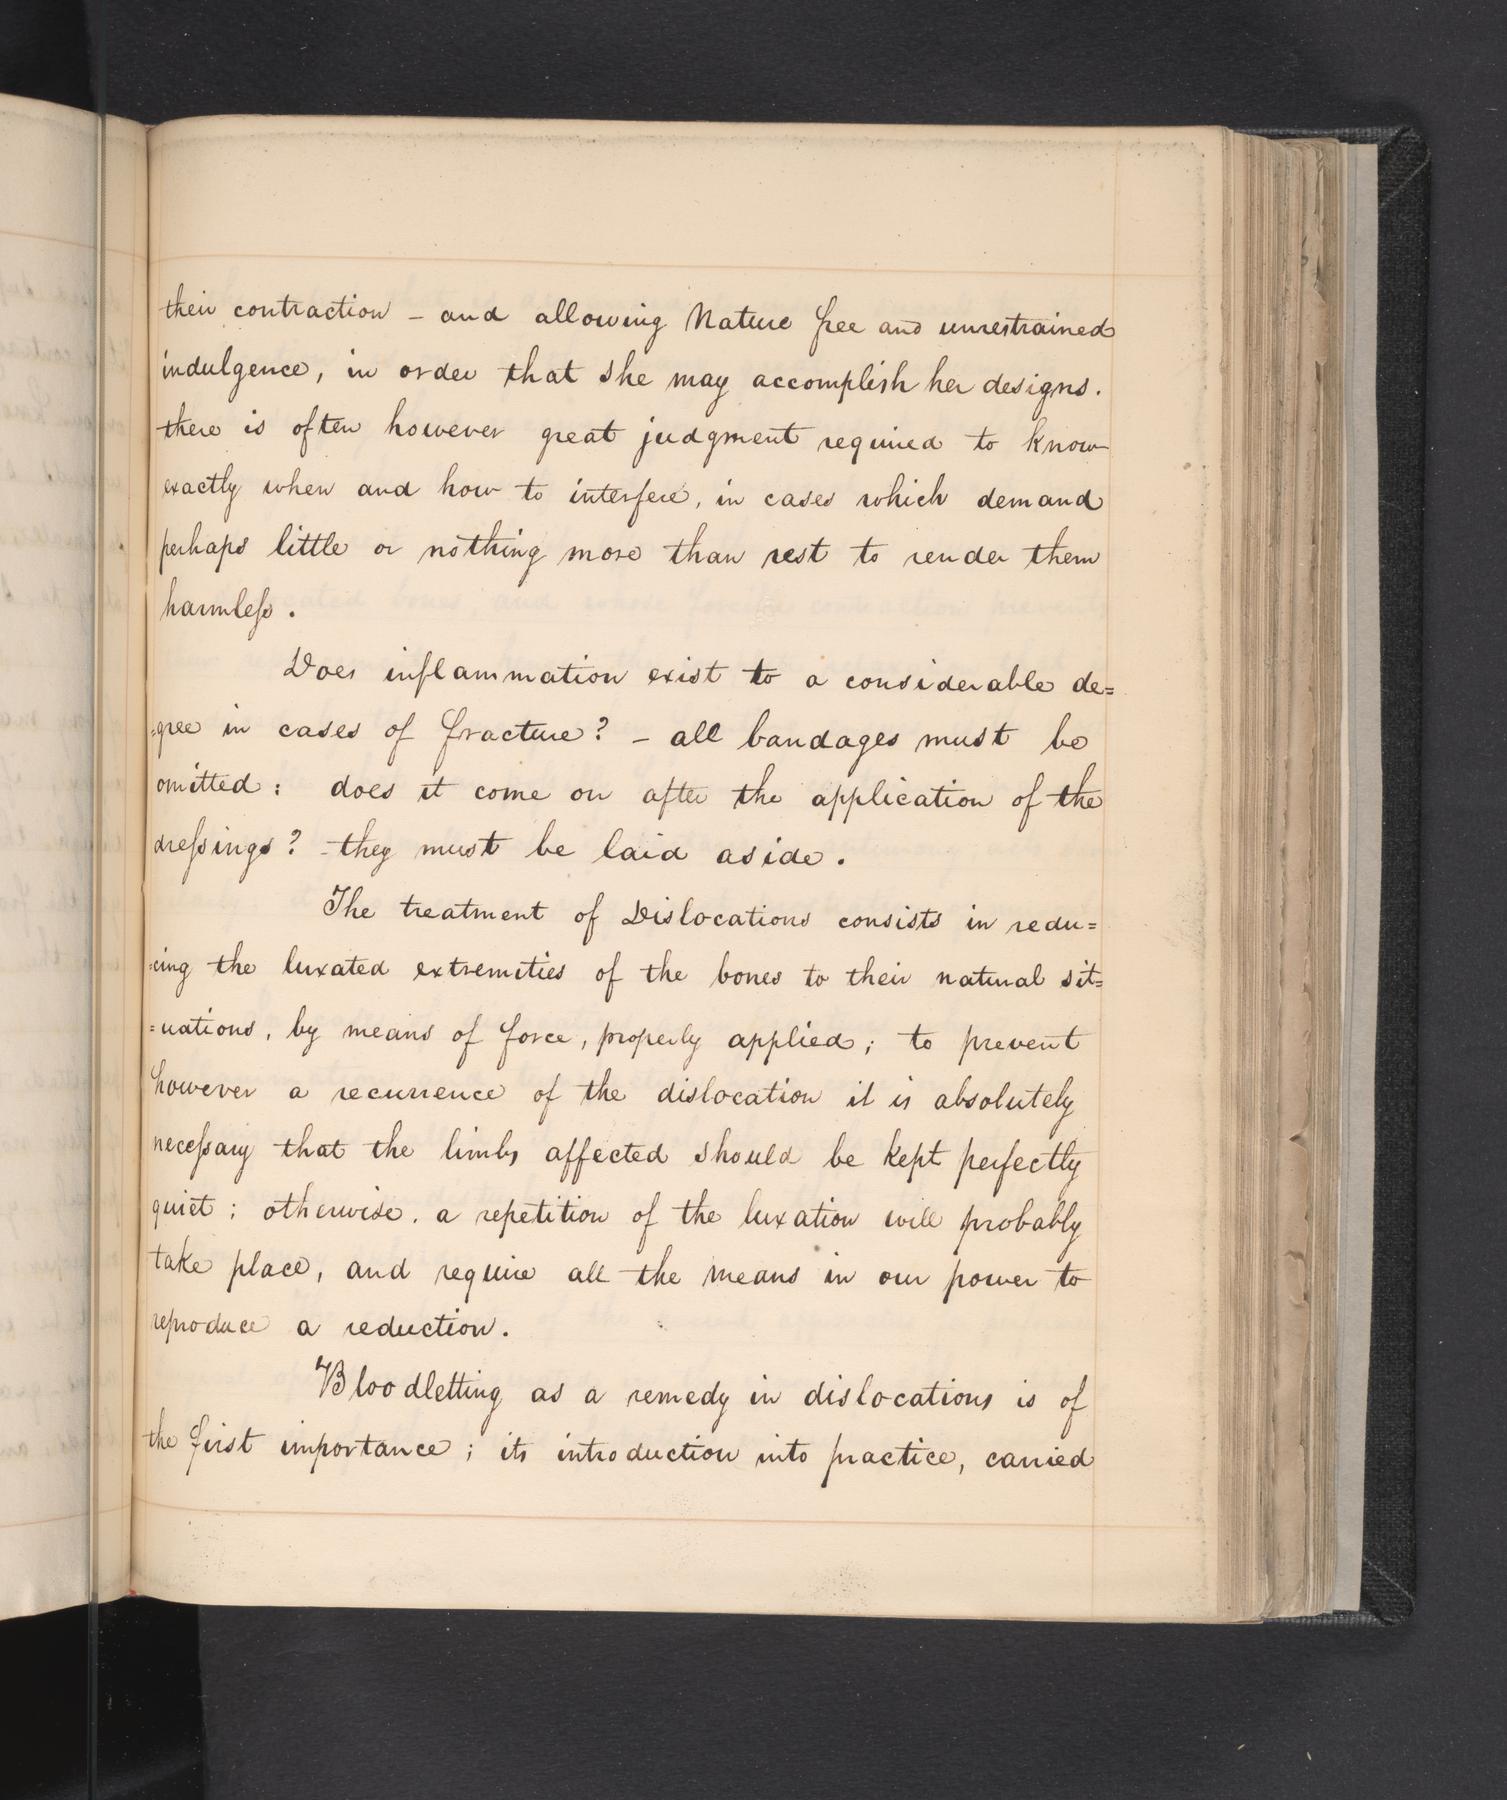 their contraction – and allowing Nature free and unrestrained
indulgence, in order that she may accomplish her designs.
there is often however great judgment required to know
exactly when and how to interfere, in cases which demand
perhaps little or nothing more than rest to render them
harmless.
Does inflammation exist to a considerable de=
=gree in cases of fracture? – all bandages must be
omitted: does it come on after the application of the
dressings? – they must be laid aside.
The treatment of Dislocations consists in redu=
=cing the luxated extremities of the bones to their natural sit=
=uations, by means of force, properly applied; to prevent
however a recurrence of the dislocation it is absolutely
necessary that the limbs affected should be kept perfectly
quiet; otherwise, a repetition of the luxation will probably
take place, and require all the means in our power to
reproduce a reduction.
Bloodletting as a remedy in dislocations is of
the first importance; its introduction into practice, carried